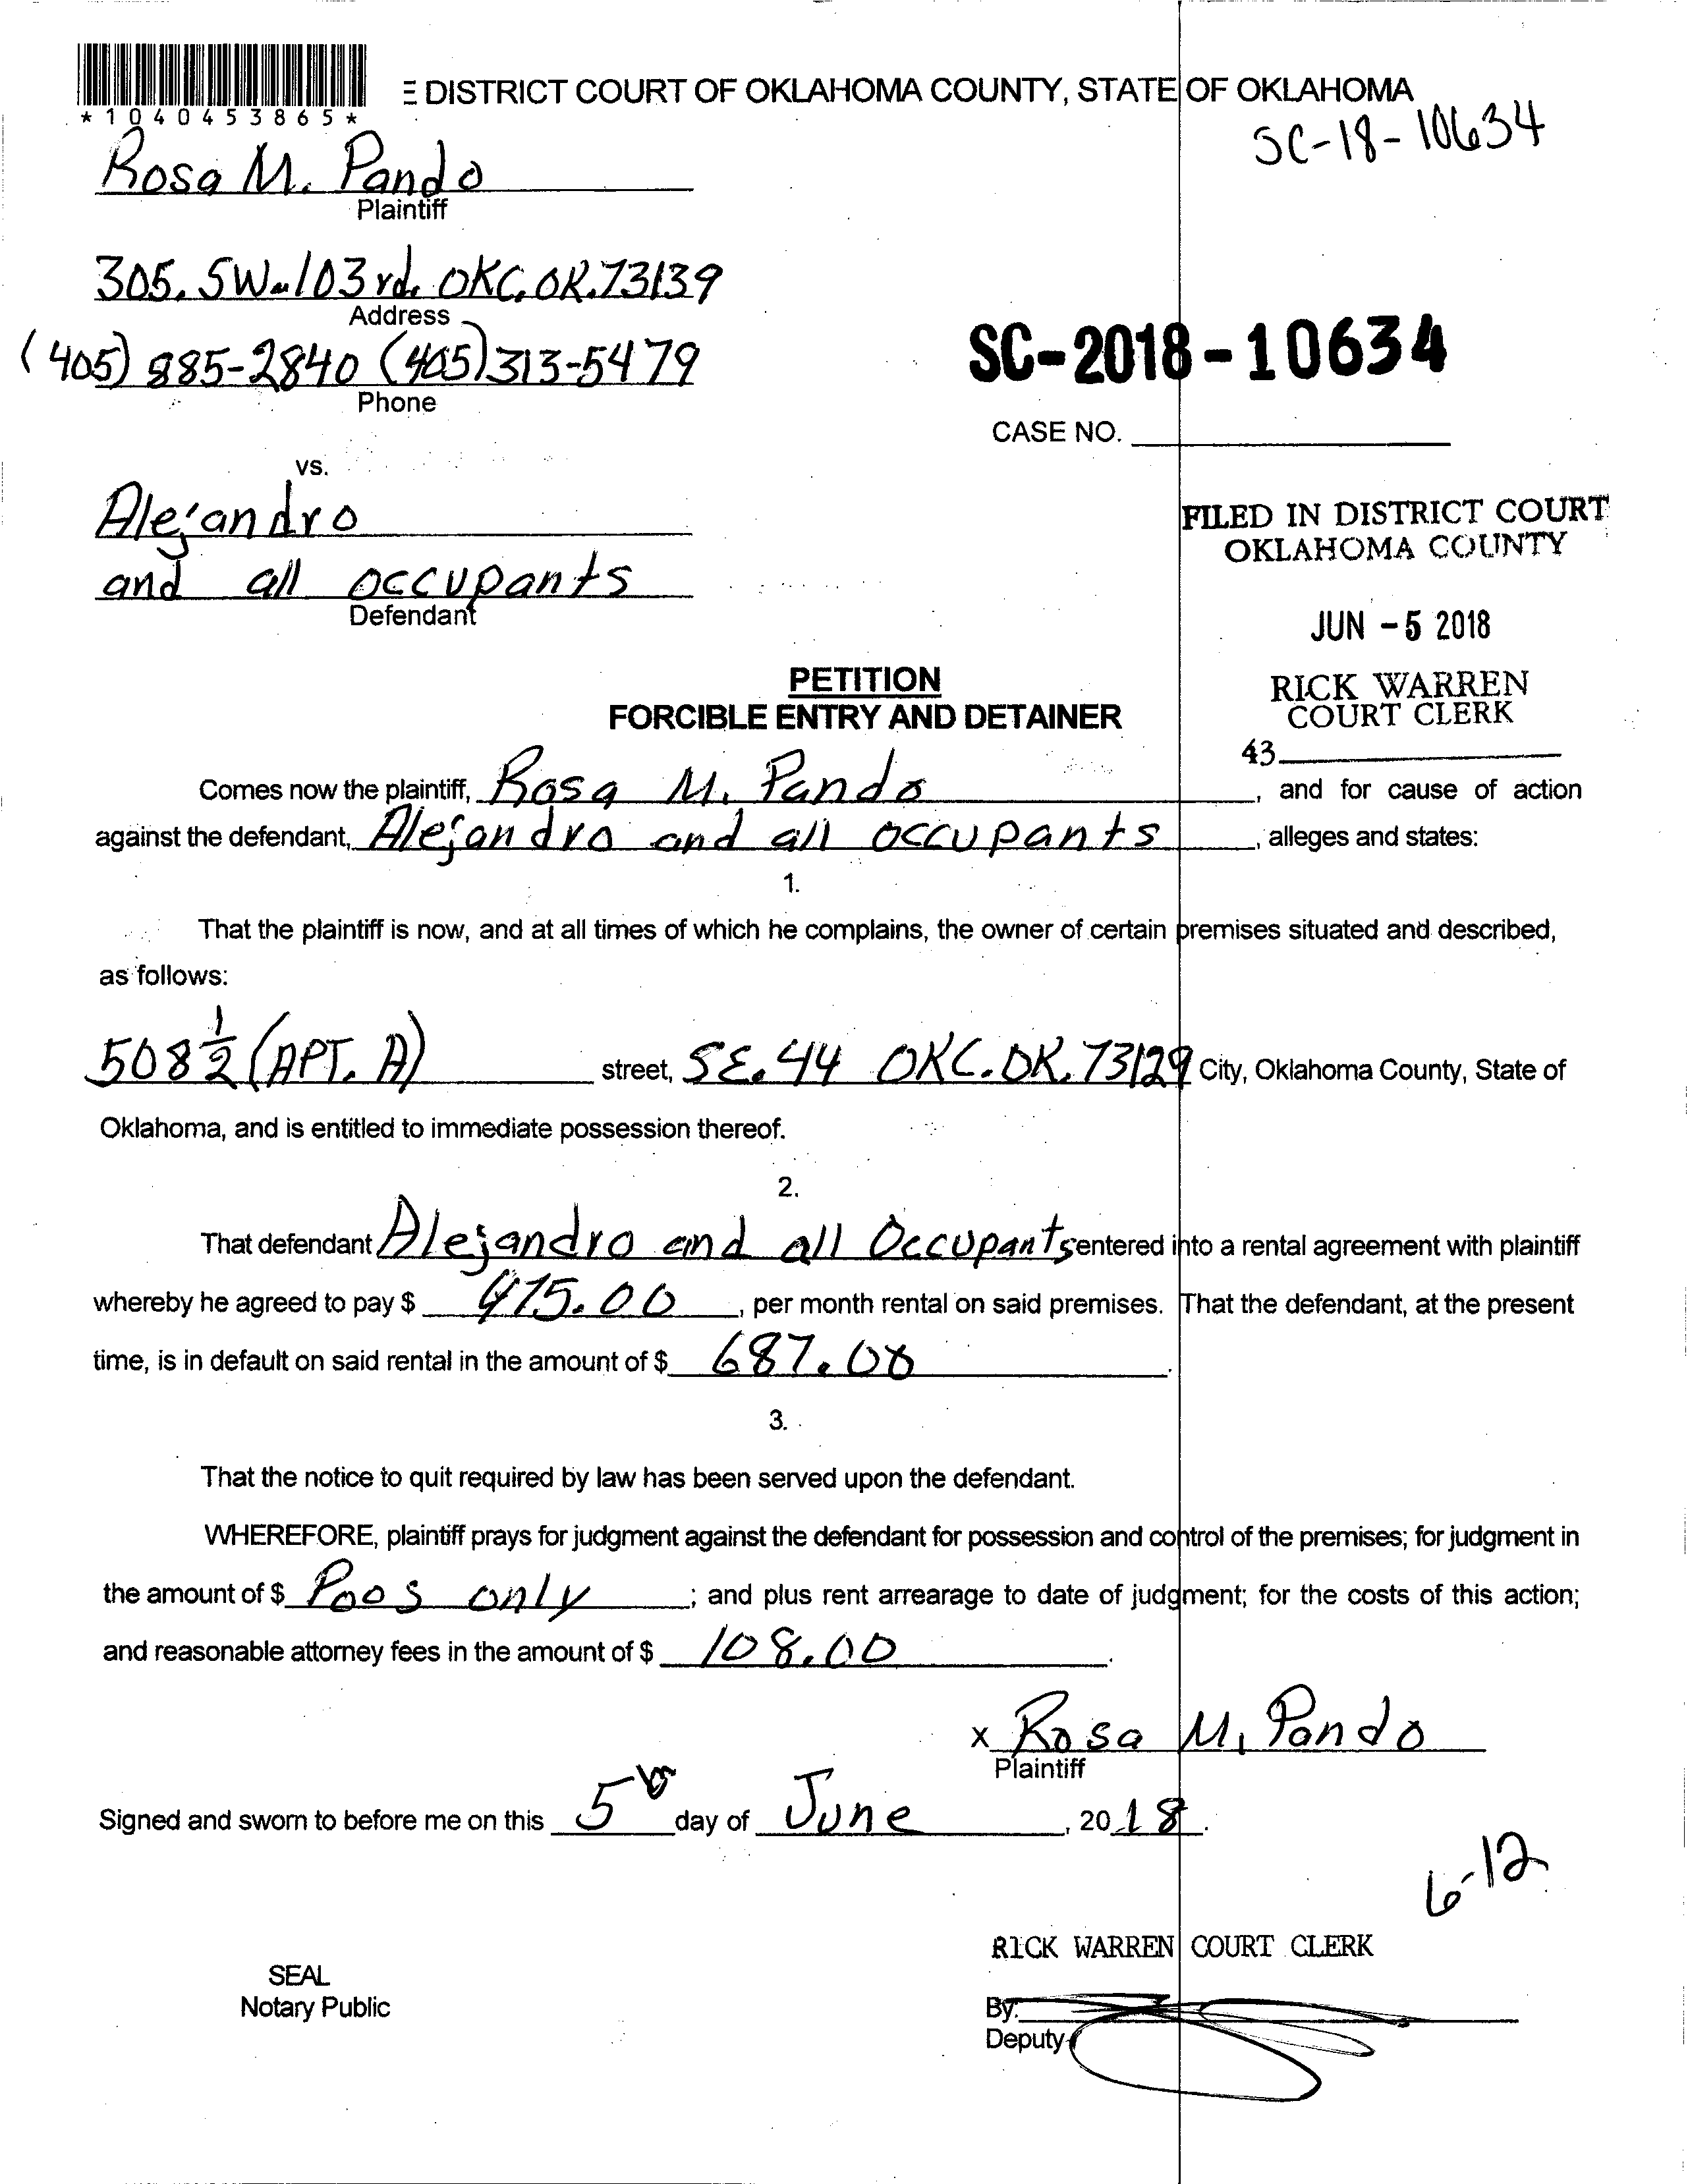 *1040453865*
E DISTRICT COURT OF OKLAHOMA COUNTY, STATE OF OKLAHOMA
SC-18-10634
Rosa M. Pando
Plaintiff
305. SW. 103rd. OKC. OK. 73139
Address
(405) 885-2840 (405) 313-5479
Phone
SC-2018-10634
CASE NO.
vs.
Alejandro
and all occupants
Defendant
FILED IN DISTRICT COURT
OKLAHOMA COUNTY
JUN -5 2018
RICK WARREN
COURT CLERK
43
PETITION
FORCIBLE ENTRY AND DETAINER
Comes now the plaintiff, Rosa M. Pando, and for cause of action
against the defendant, Alejandro and all occupants, alleges and states:
1.
That the plaintiff is now, and at all times of which he complains, the owner of certain premises situated and described,
as follows:
508 1/2 (APT. A) street, SE. 44 OKC. OK. 73129 City, Oklahoma County, State of
Oklahoma, and is entitled to immediate possession thereof.
2.
That defendant Alejandro and all Occupants entered into a rental agreement with plaintiff
whereby he agreed to pay $ 475.00, per month rental on said premises. That the defendant, at the present
time, is in default on said rental in the amount of $ 687.00.
3.
That the notice to quit required by law has been served upon the defendant.
WHEREFORE, plaintiff prays for judgment against the defendant for possession and control of the premises; for judgment in
the amount of $ Poos only; and plus rent arrearage to date of judgment; for the costs of this action;
and reasonable attorney fees in the amount of $ 108.00.
x Rosa M. Pando
Plaintiff
Signed and sworn to before me on this 5th day of June, 2018.
6-12
RICK WARREN COURT CLERK
SEAL
Notary Public
By:
Deputy